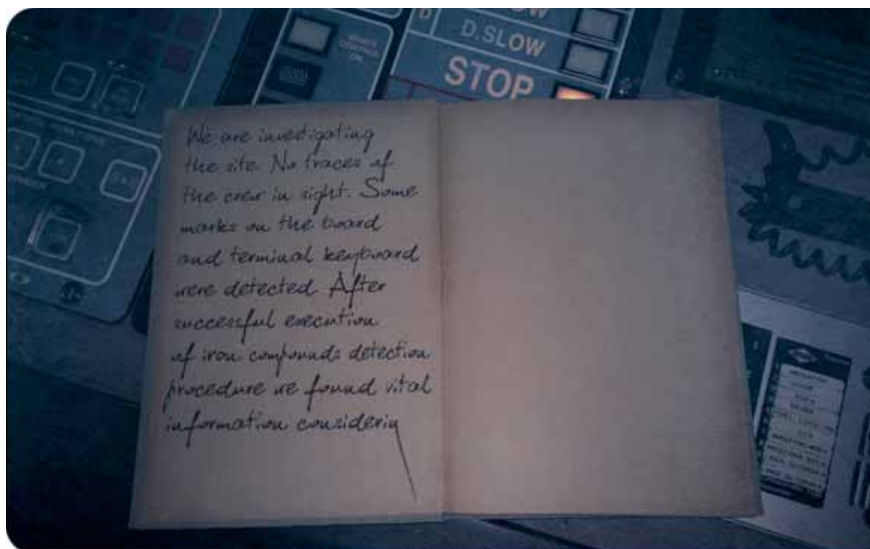 D.SLOW
STOP
We are investigating
the site. No traces of
the crew in sight. Some
marks on the board
and terminal keyboard
were detected. After
successful execution
of iron compounds detection
procedure we found vital
information considerin